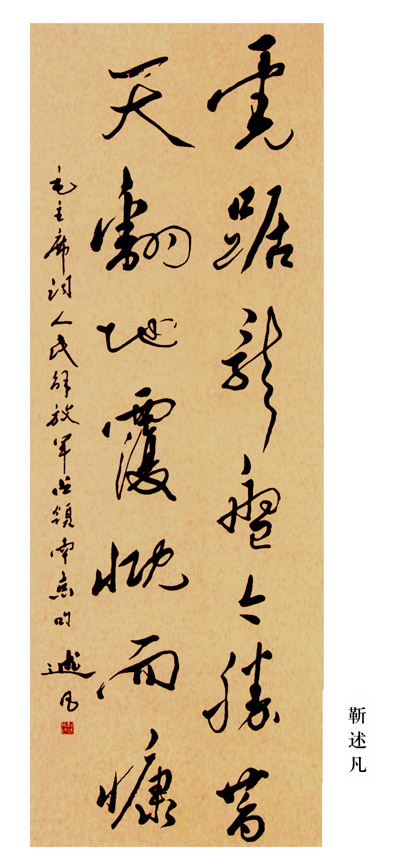 虎踞龍盤今勝昔
天翻地覆慨而慷
毛主席詞人民解放軍占領南京句 述凡
靳述凡